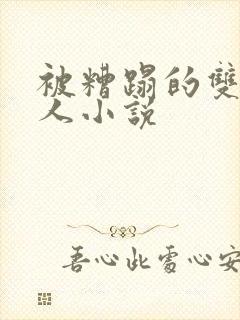 被糟蹋的雙
人小説
吾心此處心安